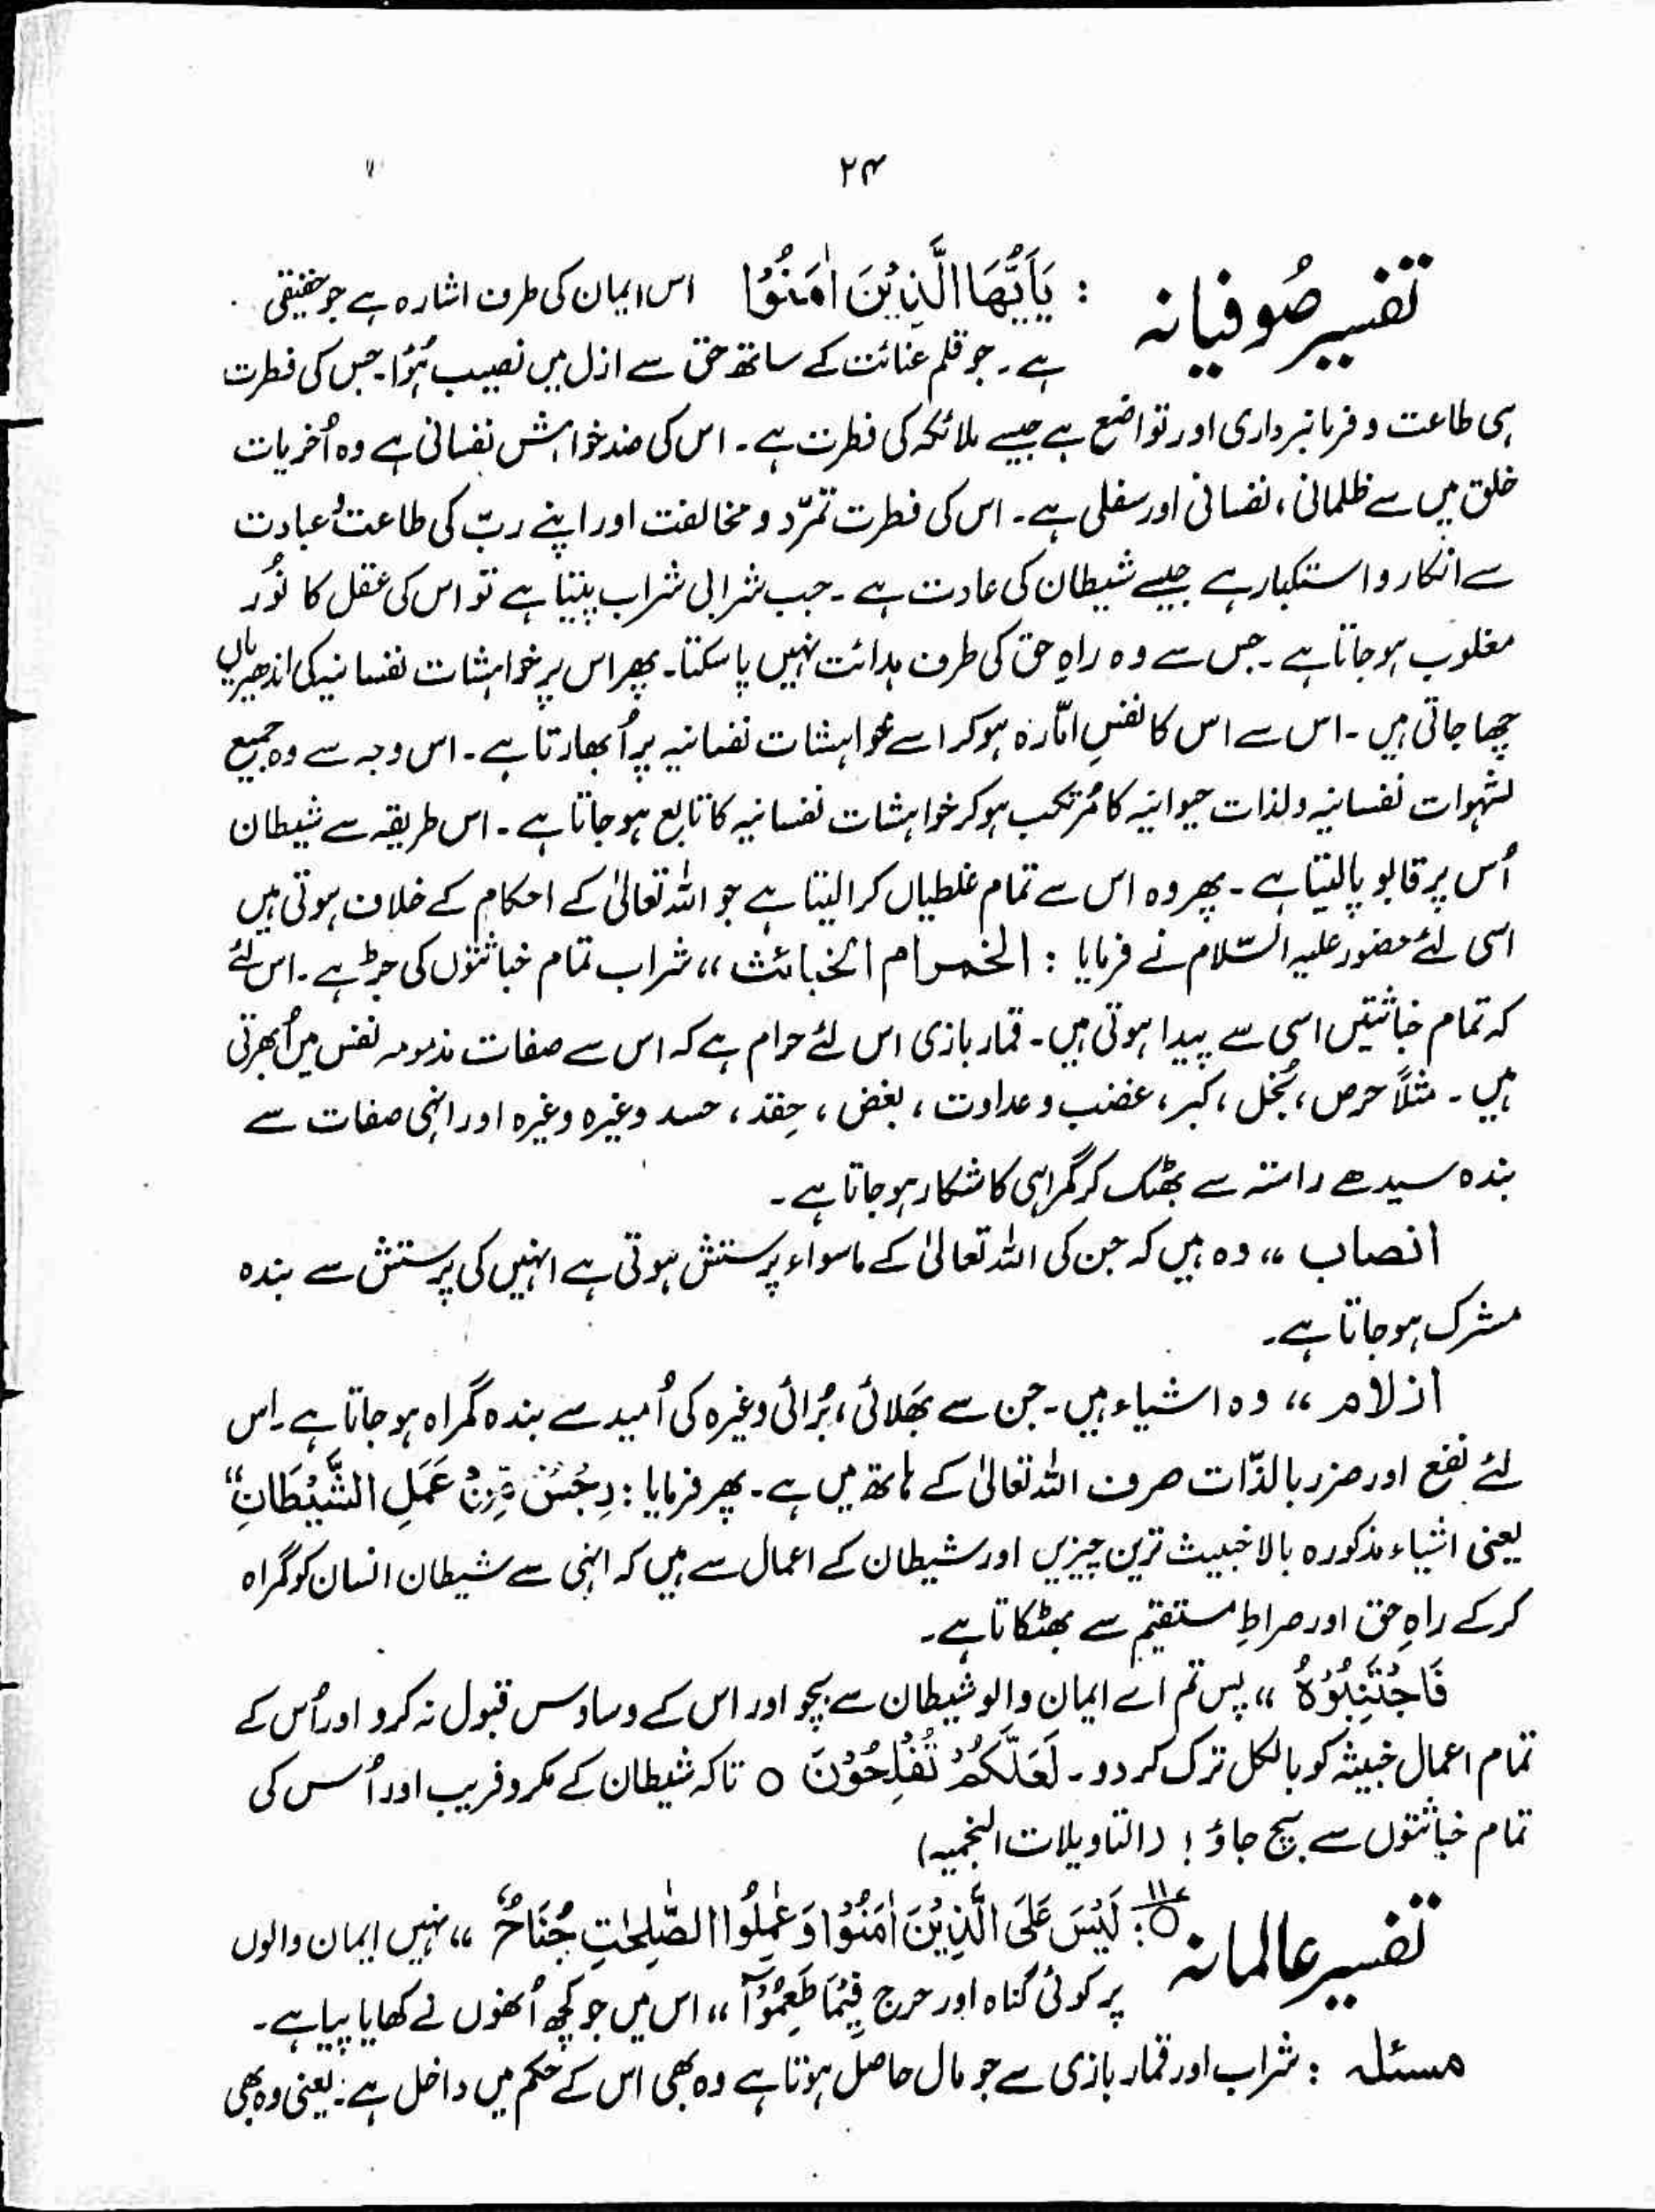 ۲۴
تفسیر صُوفیانہ : یٰۤاَیُّهَا الَّذِیْنَ اٰمَنُوْا اس ایمان کی طرف اشارہ ہے جو حقیقی
ہے ۔ جو قلم عنائت کے ساتھ حق سے ازل میں نصیب ہُؤا ۔ جس کی فطرت
ہی طاعت و فرمانبرداری اور تواضع ہے جیسے ملائکہ کی فطرت ہے ۔ اس کی ضد خواہش نفسانی ہے وہ اُخریات
خلق میں سے ظلمانی ، نفسانی اور سفلی ہے ۔ اس کی فطرت تمرّد و مخالفت اور اپنے ربّ کی طاعت و عبادت
سے انکار و استکبار ہے جیسے شیطان کی عادت ہے ۔ جب شرابی شراب پیتا ہے تو اس کی عقل کا نُور
مغلوب ہو جاتا ہے ۔ جس سے وہ راہِ حق کی طرف ہدائت نہیں پا سکتا ۔ پھر اس پر خواہشات نفسانیہ کی اندھیریاں
چھا جاتی ہیں ۔ اس سے اس کا نفسِ امّارہ ہو کر اسے خواہشات نفسانیہ پر اُبھارتا ہے ۔ اس وجہ سے وہ جمیع
شہوات نفسانیہ و لذات حیوانیہ کا مُرتکب ہو کر خواہشات نفسانیہ کا تابع ہو جاتا ہے ۔ اس طریقہ سے شیطان
اُس پر قابو پا لیتا ہے ۔ پھر وہ اس سے تمام غلطیاں کرا لیتا ہے جو اللہ تعالیٰ کے احکام کے خلاف ہوتی ہیں
اسی لئے حضور علیہ السّلام نے فرمایا : الخمر ام الخبائث ،، شراب تمام خباثتوں کی جڑ ہے ۔ اس لئے
کہ تمام خباثتیں اسی سے پیدا ہوتی ہیں ۔ قمار بازی اس لئے حرام ہے کہ اس سے صفات مذمومہ نفس میں اُبھرتی
ہیں ۔ مثلاً حرص ، بُخل ، کبر ، غضب و عداوت ، بغض ، حِقد ، حسد وغیرہ وغیرہ اور انہی صفات سے
بندہ سیدھے راستہ سے بھٹک کر گمراہی کا شکار ہو جاتا ہے ۔
انصاب ،، وہ ہیں کہ جن کی اللہ تعالیٰ کے ماسواء پرستش ہوتی ہے انہیں کی پرستش سے بندہ
مشرک ہو جاتا ہے ۔
ازلام ،، وہ اشیاء ہیں ۔ جن سے بھَلائی ، بُرائی وغیرہ کی اُمید سے بندہ گمراہ ہو جاتا ہے ۔ اس
لئے نفع اور ضرر بالذّات صرف اللہ تعالیٰ کے ہاتھ میں ہے ۔ پھر فرمایا : رِجْسٌ مِّنْ عَمَلِ الشَّیْطَانِ“
یعنی اشیاء مذکورہ بالا خبیث ترین چیزیں اور شیطان کے اعمال سے ہیں کہ انہی سے شیطان انسان کو گمراہ
کر کے راہِ حق اور صراطِ مستقیم سے بھٹکاتا ہے ۔
فَاجْتَنِبُوْهُ ،، پس تم اے ایمان والو شیطان سے بچو اور اس کے وساوس قبول نہ کرو اور اُس کے
تمام اعمال خبیثہ کو بالکل ترک کر دو ۔ لَعَلَّكُمْ تُفْلِحُوْنَ ○ تاکہ شیطان کے مکر و فریب اور اُس کی
تمام خباثتوں سے بچ جاؤ ! (التاویلات النجمیہ)
تفسیر عالمانہ : لَیْسَ عَلَی الَّذِیْنَ اٰمَنُوْا وَ عَمِلُوا الصّٰلِحٰتِ جُنَاحٌ ،، نہیں ایمان والوں
پر کوئی گناہ اور حرج فِیْمَا طَعِمُوْٓا ،، اس میں جو کچھ اُنھوں نے کھایا پیا ہے ۔
مسئلہ : شراب اور قمار بازی سے جو مال حاصل ہوتا ہے وہ بھی اس کے حکم میں داخل ہے : یعنی وہ بھی